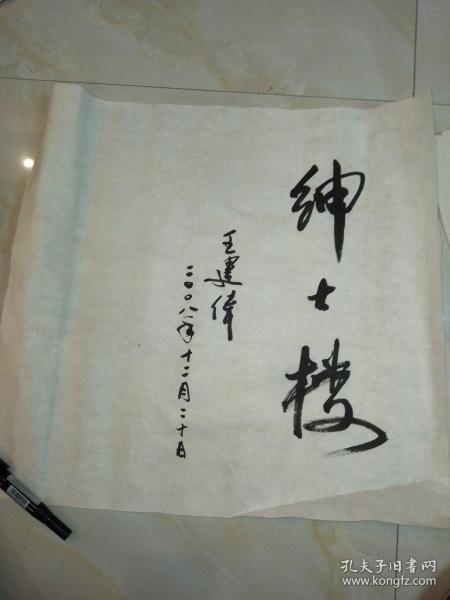 绅士楼
王建伟
二〇〇八年十二月二十日
孔夫子旧书网
www.kongfz.com